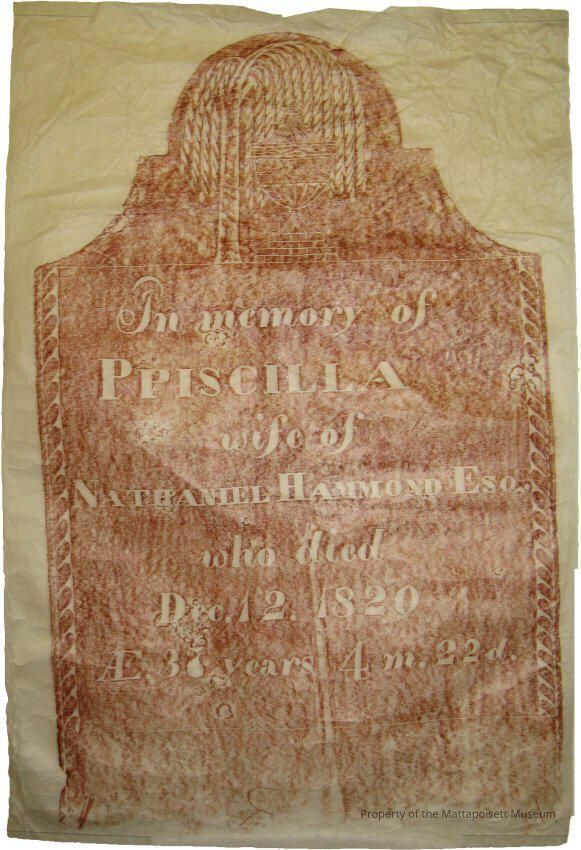 In memory of
PRISCILLA
wife of
NATHANIEL HAMMOND ESQ.
who died
Dec. 12. 1820
Æ. years 4 m. 22 d.
Property of the Mattapoisett Museum